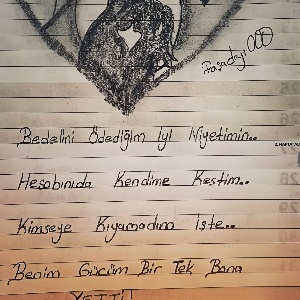 Bedelini Ödediğim İyi Niyetimin..
Hesabınıda Kendime Kestim..
Kimseye Kıyamadım İşte..
Benim Gücüm Bir Tek Bana
YETTİ